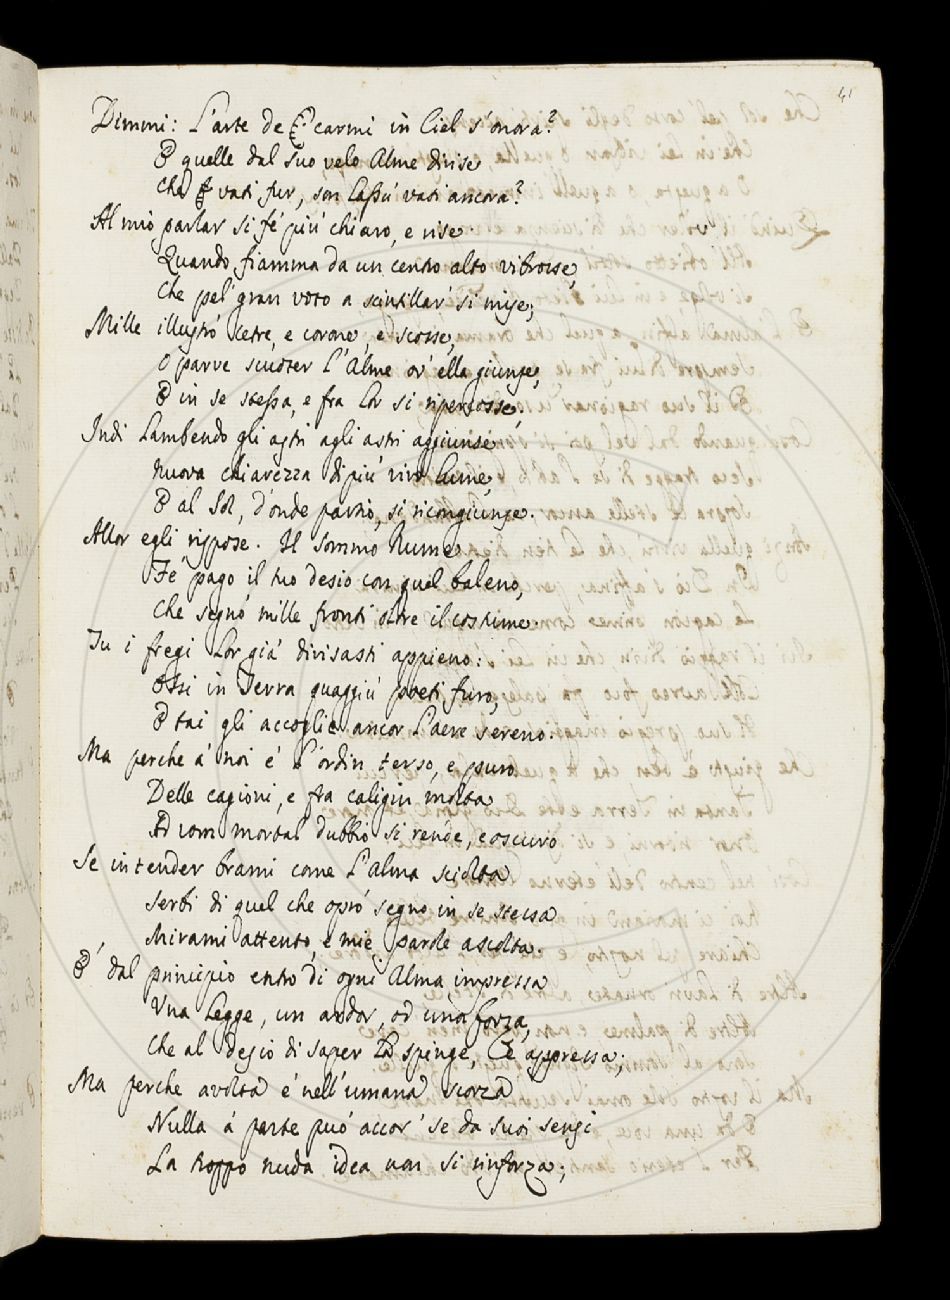 41
Dimmi: L'arte de carmi in Ciel s'onora?
E quelle dal suo velo Alme divise
Che vati fur, son Lassú vati ancora?
Al mio parlar si fé piú chiaro, e rise
Quando fiamma da un centro alto vibrosse,
Che pel gran voto a scintillar si mise;
Mille illustró cetre, e corone, e scosse,
O parve scuoter L'Alme ov'ella giunse,
E in se stessa, e fra Lor si ripercosse,
Indi Lambendo gli astri agli astri aggiunse
Nuova chiarezza di piú vivo Lume,
E al Sol, d'onde partio, si ricongiunse.
Allor egli rispose. Il sommo Nume
Fé pago il tuo desio con quel baleno,
Che segnó mille fronti oltre il costume
Tu i fregi Lor giá divisasti appieno:
Essi in Terra quaggiú poeti furo,
E tai gli accoglie ancor L'aere sereno.
Ma perche á noi é L'ordin terso, e puro
Delle cagioni, e fra caligin molta
Ad uom mortal dubbio si rende, e oscuro
Se intender brami come L'alma sciolta
Serbi di quel che opró segno in se stessa
Mirami attento, e mie parole ascolta.
É dal principio entro di ogni Alma impressa
Una Legge, un ardor, od una forza,
Che al desio di saper La spinge, e appressa;
Ma perche avolta é nell'umana scorza
Nulla á parte puó accor se da suoi sensi
La troppo nuda idea non si rinforza;